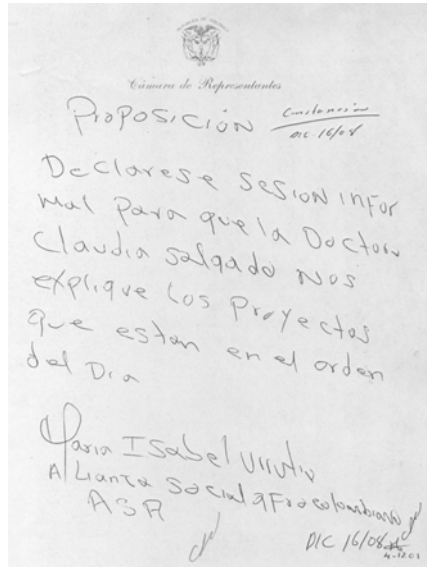 Cámara de Representantes
PROPOSICIÓN
Constancia
DIC 16/08
Declarese sesion infor
mal para que la Doctora
Claudia Salgado nos
explique los proyectos
que estan en el orden
del Dia
Maria Isabel Urrutia
Alianza Social Afrocolombiana
ASA
DIC 16/08